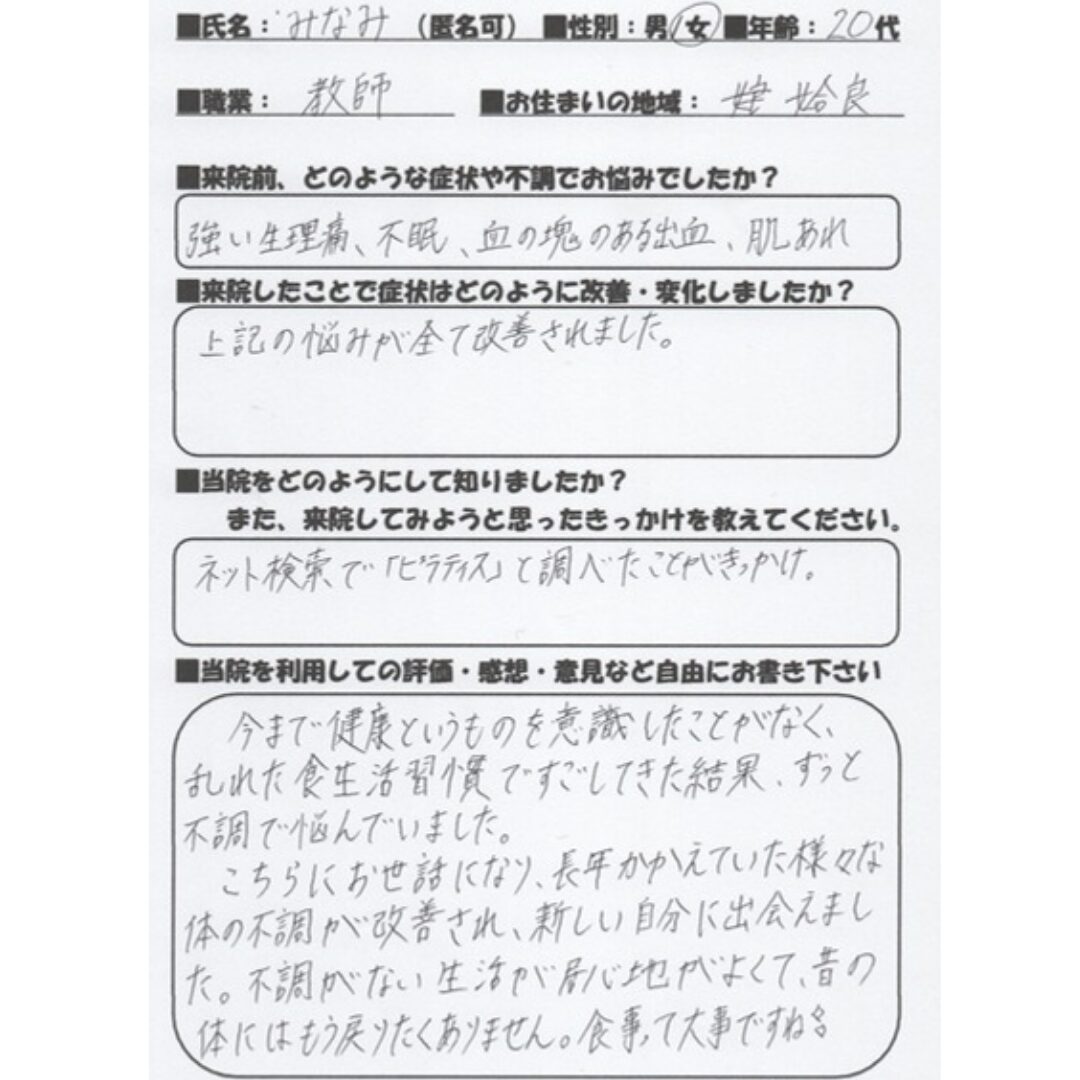 ■氏名：みなみ（匿名可） ■性別：男 女 ■年齢：20代
■職業：教師 ■お住まいの地域：姶良
■来院前、どのような症状や不調でお悩みでしたか？
強い生理痛、不眠、血の塊のある出血、肌あれ
■来院したことで症状はどのように改善・変化しましたか？
上記の悩みが全て改善されました。
■当院をどのようにして知りましたか？
また、来院してみようと思ったきっかけを教えてください。
ネット検索で「ピラティス」と調べたことがきっかけ。
■当院を利用しての評価・感想・意見など自由にお書き下さい
今まで健康というものを意識したことがなく、
乱れた食生活習慣ですごしてきた結果、ずっと
不調で悩んでいました。
こちらにお世話になり、長年かかえていた様々な
体の不調が改善され、新しい自分に出会えまし
た。不調がない生活が居心地がよくて、昔の
体にはもう戻りたくありません。食事って大事ですね